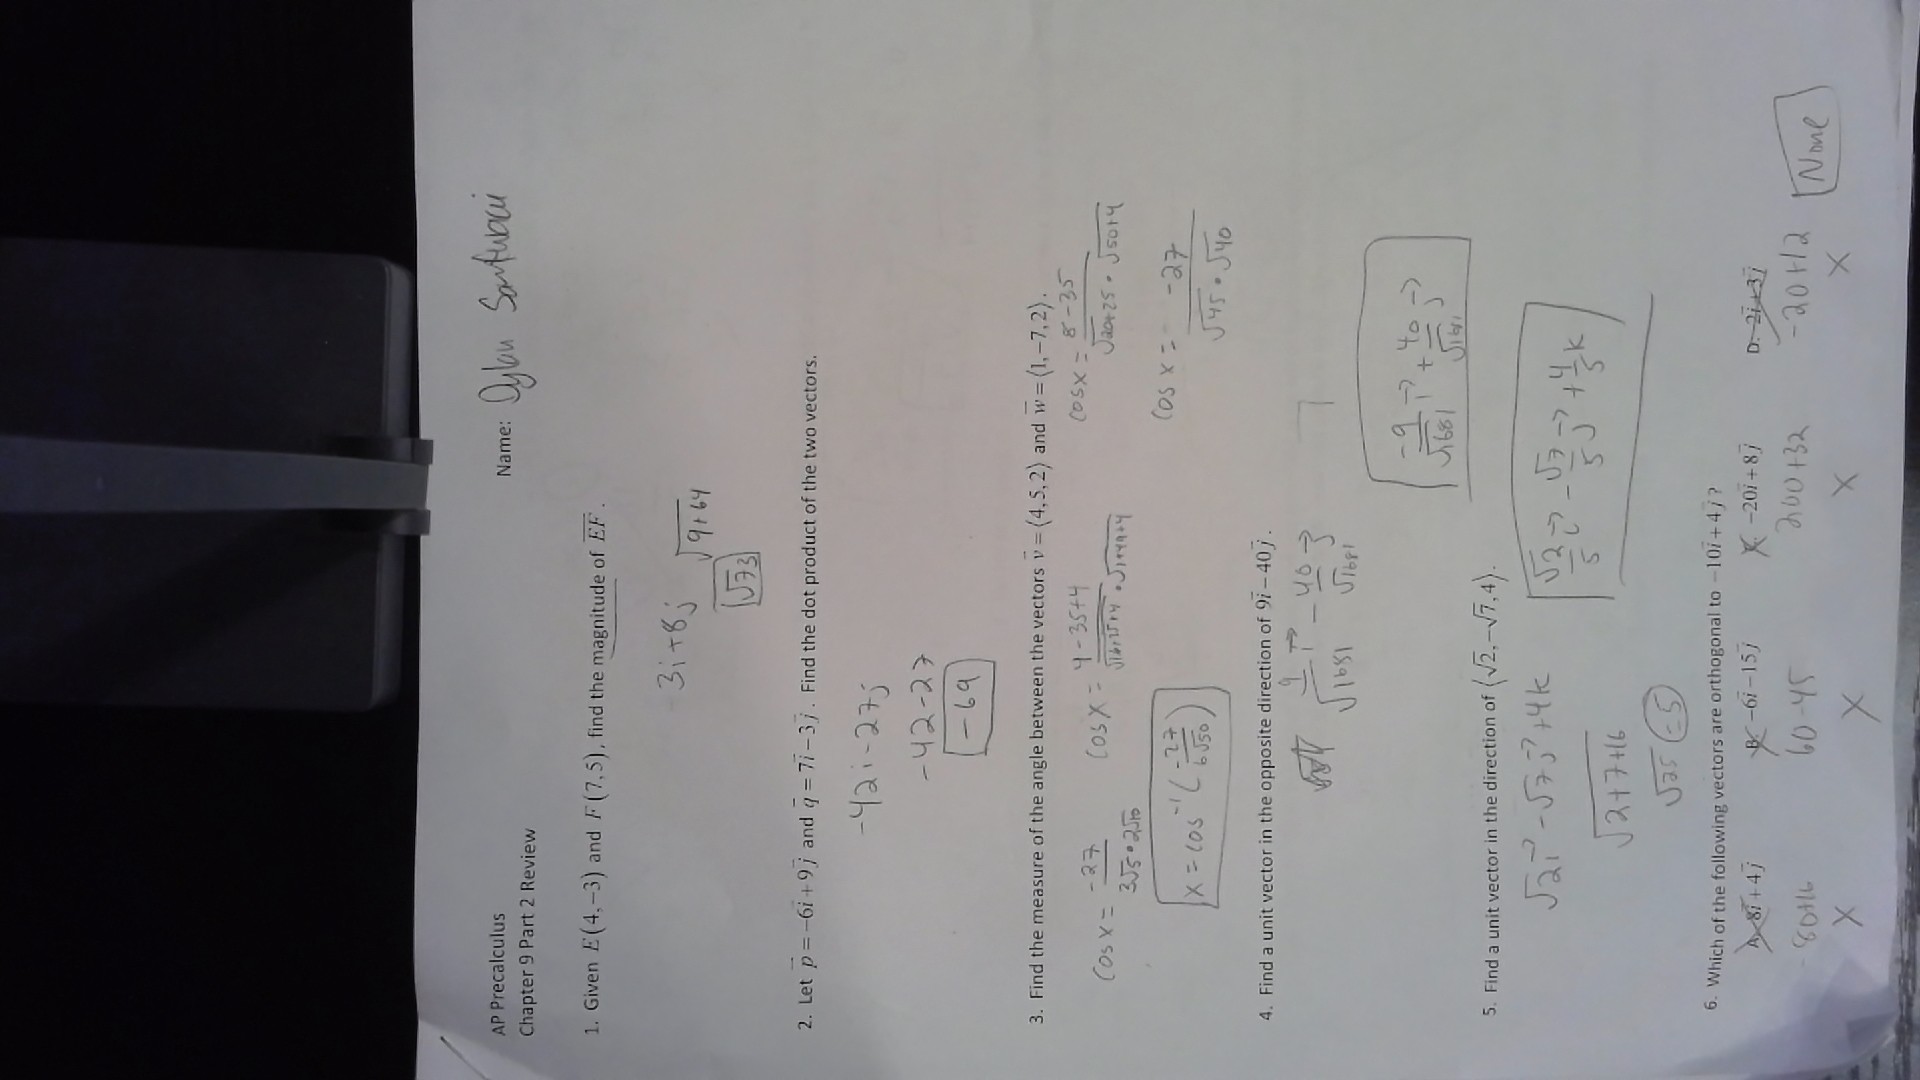 AP Precalculus
Name: Dylan
Chapter 9 Part 2 Review
1. Given E(4,−3) and F(7,5), find the magnitude of EF.
3i+8j
√9+64
√73
2. Let p = −6i+9j and q = 7i−3j. Find the dot product of the two vectors.
-42i-27j
-42-27
-69
3. Find the measure of the angle between the vectors v = ⟨4,5,2⟩ and w = ⟨1,−7,2⟩.
cosx = 4-35+4 / √16+25+4 • √1+49+4
cosx = 8-35 / √20+25 • √50+4
cosx = -27 / √45 • √40
cosx = -27 / 3√5 • 2√10
x = cos⁻¹(-27 / 6√50)
4. Find a unit vector in the opposite direction of 9i−40j.
9/√1681 i - 40/√1681 j
-9/√1681 i + 40/√1681 j
5. Find a unit vector in the direction of ⟨√2,−√7,4⟩.
√2i - √7j + 4k
√2+7+16
√25 = 5
√2/5 i - √7/5 j + 4/5 k
6. Which of the following vectors are orthogonal to −10i+4j?
A. 8i+4j B. −6i−15j C. −20i+8j D. 2i+3j
-80+16 60-45 200+32 -20+12 None
X X X X